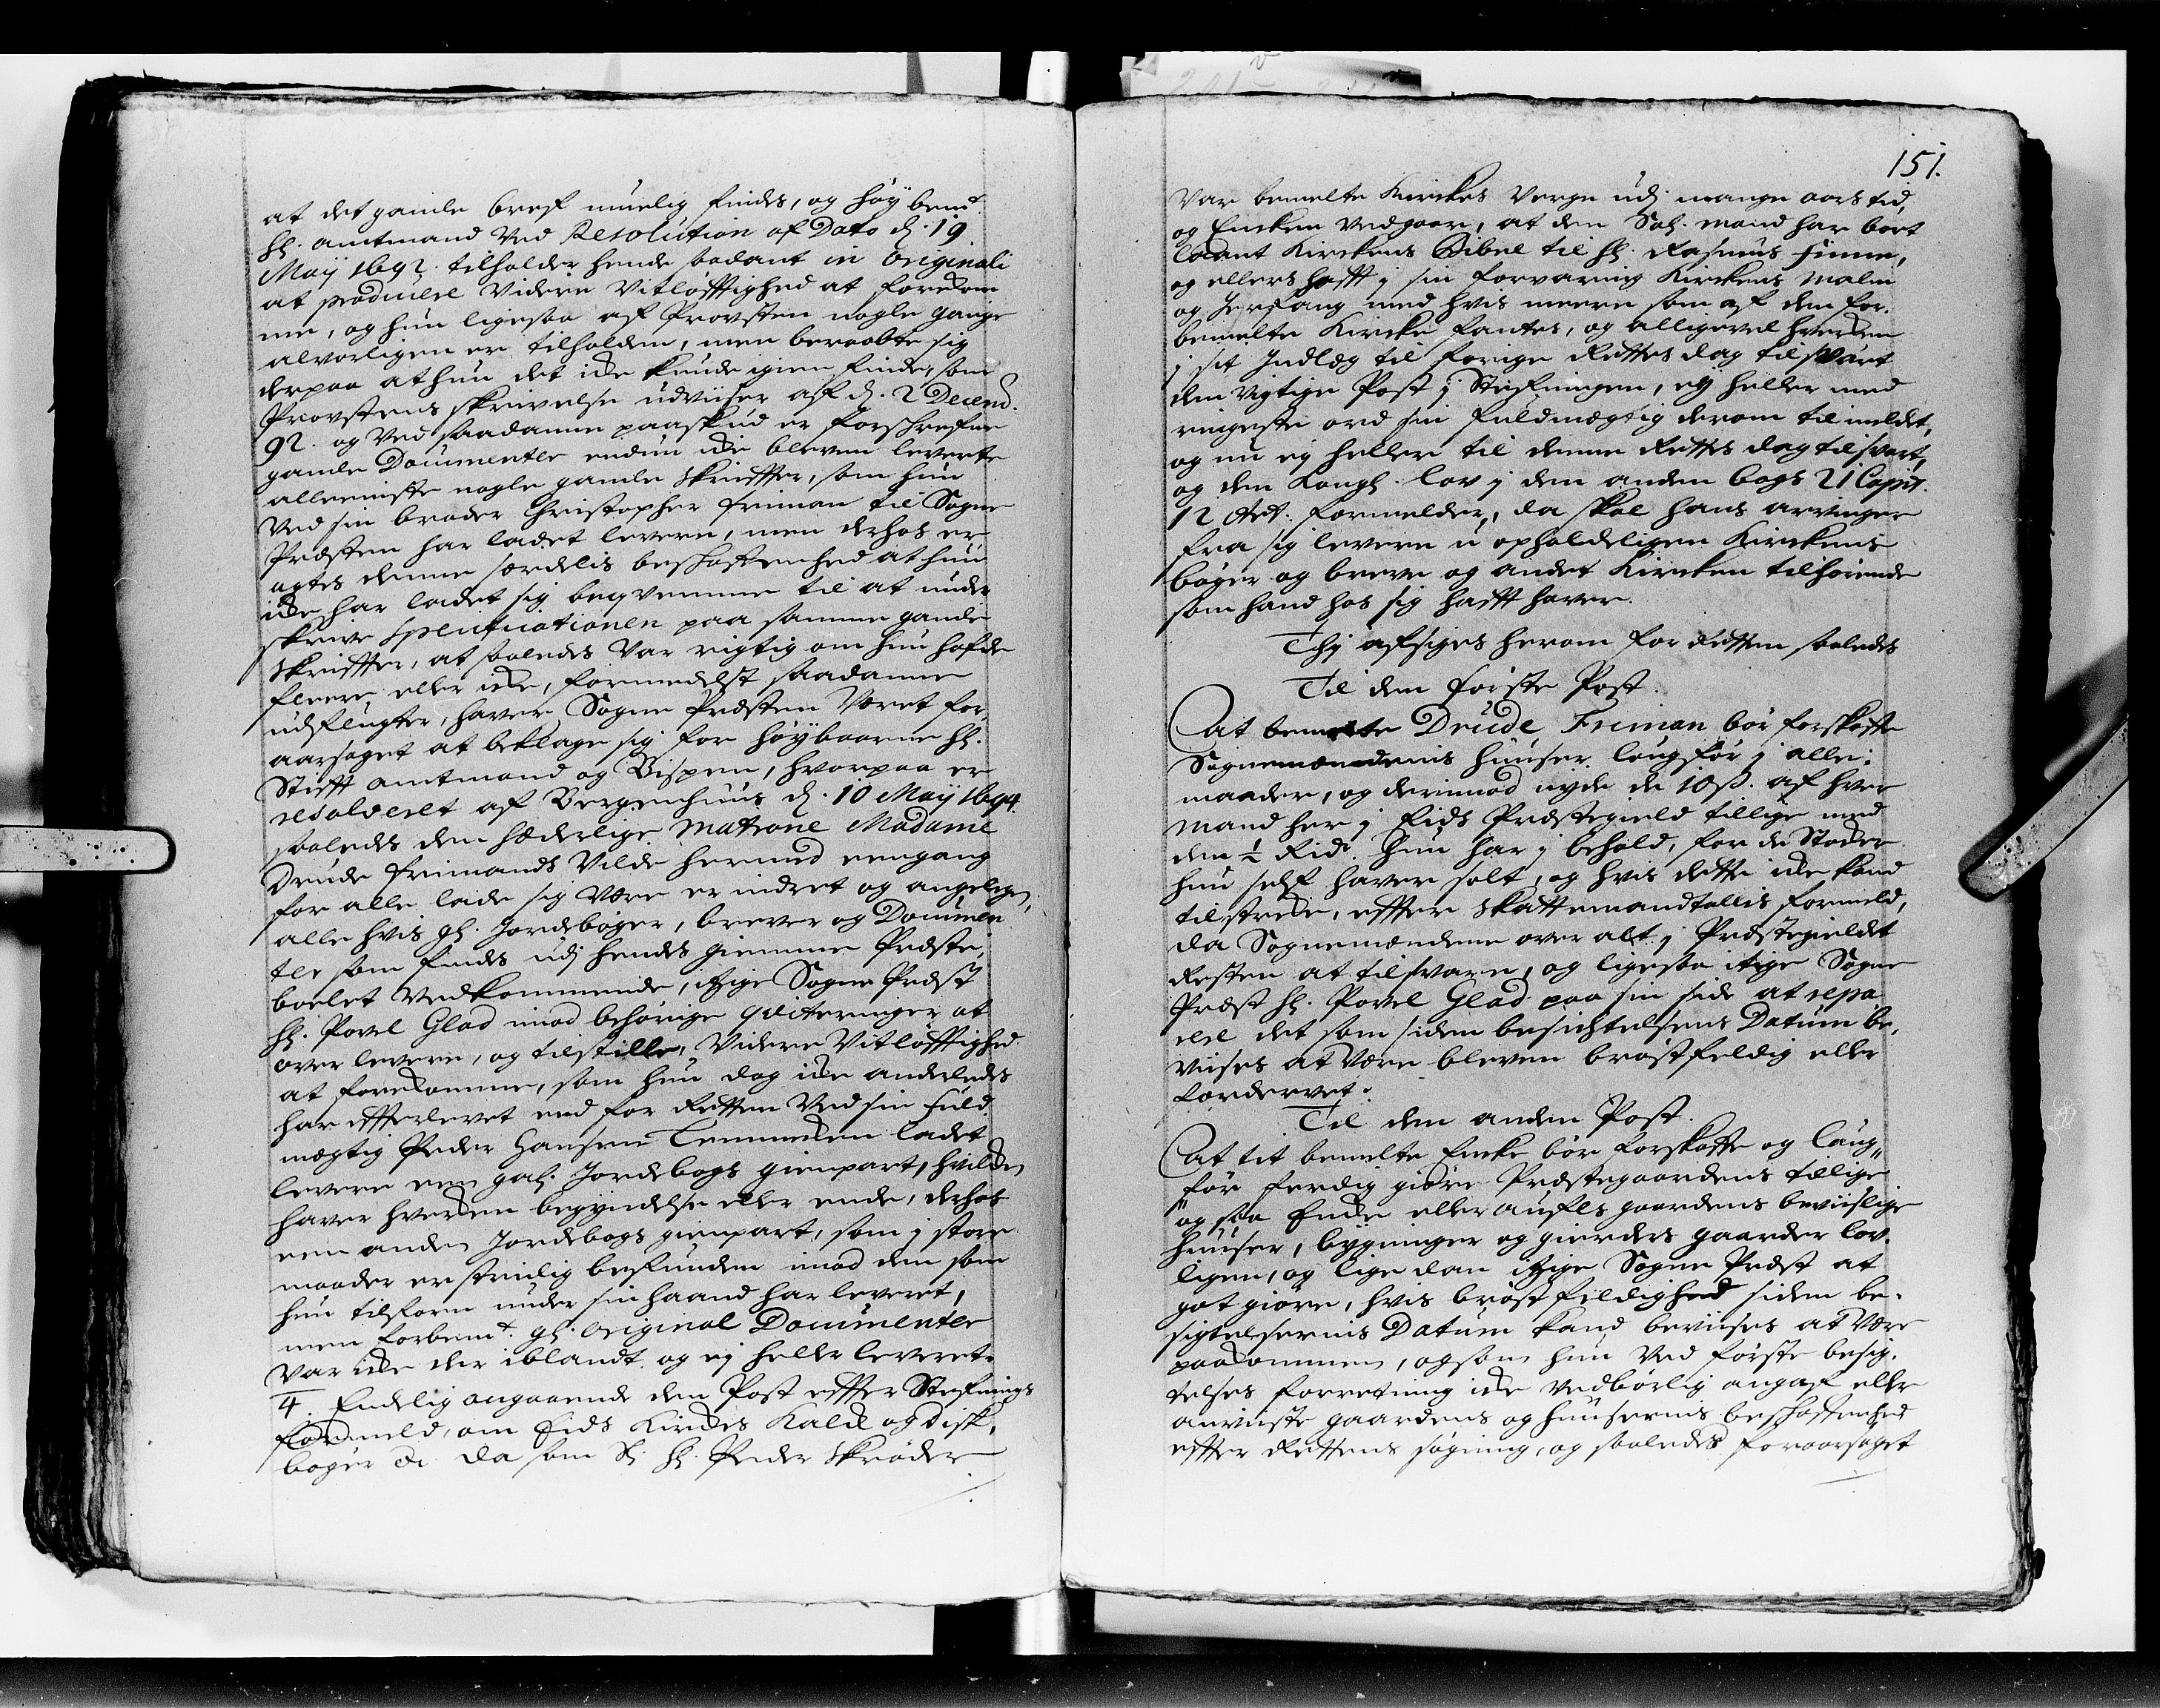 at det gamle bref muelig findes, og høy bemt.
Hr. amtmand Ved Resolution af Dato d. 19
Maÿ 1692. tilholder hende saadant in Originali
at producere Videre Vitløfftighed at forekom
me, og hun ligesaa af Provsten nogle gange
alvorligen er tilholden, men beraabte sig
derpaa at hun det icke kunde igien finde, som
Provstens skrivelse udviiser af d. 2 Decemb.
92. og Ved saadanne paaskud er forschrefne
gamle Documenter endnu icke bleven leverte
alleeniste nogle gamle skriffter, som hun
Ved sin broder Christopher Friman til Sogne
Præsten har ladet levere, men derhos er
agtes denne særdelis beskaffenhed at hun
icke har ladet sig beqvemme til at under
skrive Specificationen paa samme gamle
skriffter, at saaledes Var rigtig om hun hafde
fleere eller icke, formedelst saadanne
udflugter, haver Sogne Præsten Været for
aarsaget at beklage sig for høÿbaarne Hr.
Stifft amtmand og Bispen, hvorpaa er
resolveret af Bergenhuus d. 10 Maÿ 1694.
saaledes den hæderlige Matrone Madame
Drude Frimands Vilde hermed eengang
for alle lade sig Være erindret og angelegen,
alle hvis gl. Jordebøger, brever og Documen
ter som findes udj hendes giemme Præste,
boelet Vedkommende, itzige Sogne Præst
Hr. Povel Glad imod behørige qvitteringer at
over levere, og tilstille, Videre Vitløfftighed
at forekomme, som hun dog icke anderledes
har efterlevet end for Retten Ved sin fuld
mægtig Peder Hansen Temmelen ladet
levere een gal. Jordebogs gienpart, hvilcken
haver hvercken begyndelse eller ende, derhos
een anden Jordebogs gienpart, som j store
maader er striidig befunden imod den som
hun tilforn under sin haand har leveret,
men forbemt. gl. Original Documenter
Var icke der iblandt og ej heller leveret.
4. Endelig angaaende den Post effter Stefnings
formeld, om Eids Kirckes Kalck og disk,
bøger &c. da som Sl. Hr. Peder Skrøder
151.
Var bemelte Kirckes Verge udj mange aars tid,
og Encken Vedgaar, at den Sal. mand har bort
laant Kirckens Bibel til Hr. Rasmus Finne,
og ellers hafft j sin forvaring Kirckens malm
og Jerfang med hvis meere som af den for-
bemelte Kircke fantes, og alligevel hvercken
j sit Indlæg til forige Rettes dag til svaret
den Vigtige Post j Steffningen, eÿ heller med
ringeste ord sin fuldmægtig derom til meldet,
og nu ej heller til denne Rettes dag tilsvart,
og den Kongl. lov j den anden bogs 21 Capit.
12 Art: formelder, da skal hans arvinger
fra sig levere u opholdeligen Kirckens
bøger og breve og andet Kircken tilhørende
som hand hos sig hafft haver.
Thj afsiges herom for Retten saaledes
Til den første Post.
At bemelte Drude Friman bør forskaffe
Sognemændenis huuser laugfør j alle
maader, og derimod nyde de 10 ß. af hver
Mand her j Eids Præstegield tillige med
den ½ Rixdr. hun har j behold, for de Stocker
hun self haver solt, og hvis dette icke kand
tilstrecke, effter Skattemandtallis formeld,
da Sognemændene over alt j Præstegieldet
Resten at tilsvare, og ligesaa itzige Sogne
Præst Hr. Povel Glad paa sin side at repa
rere det som siden besichtelsens Datum be,
viises at Være bleven brøstfeldig eller
fordervet.
Til den anden Post.
At tit bemelte Encke bør forskaffe og laug„
„før ferdig giøre Præstegaardens tillige
og saa Encke eller aufls gaardens beviislige
huuser, bygninger og gierdes gaarder lov-
ligen, og lige dan itzige Sogne Præst at
got giøre, hvis brøstfeldighed siden be-
sigtelsernis Datum kand beviises at Være
paakommen, og som hun Ved første besig-
telses forretning icke Vedbørlig angaf eller
anviiste gaardens og huusernis beskaffenhed
effter Rettens søgning, og saaledes foraarsaget